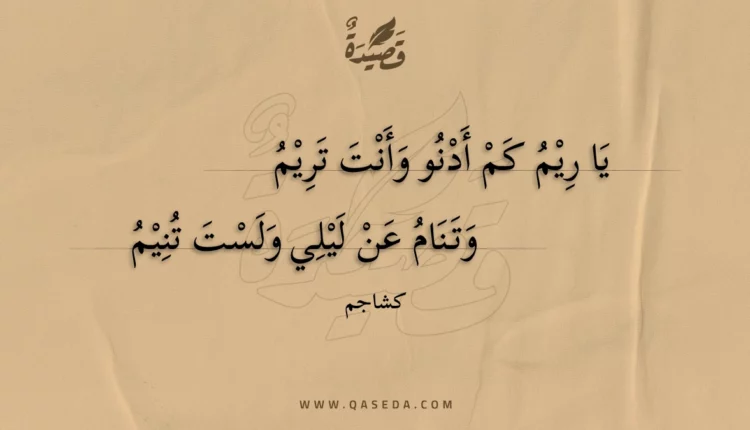 قَصِيدَةٌ
يَا رِيْمُ كَمْ أَدْنُو وَأَنْتَ تَرِيْمُ
وَتَنَامُ عَنْ لَيْلِي وَلَسْتَ تُنِيْمُ
كشاجم
WWW.QASEDA.COM